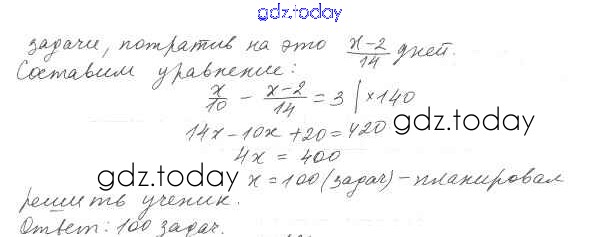 gdz.today
задачи, потратив на это (x-2)/14 дней.
Составим уравнение:
x/10 - (x-2)/14 = 3 | ×140
14x-10x+20=420
gdz.today
4x = 400
gdz.today
x=100 (задач) - планировал
решить ученик.
Ответ: 100 задач.